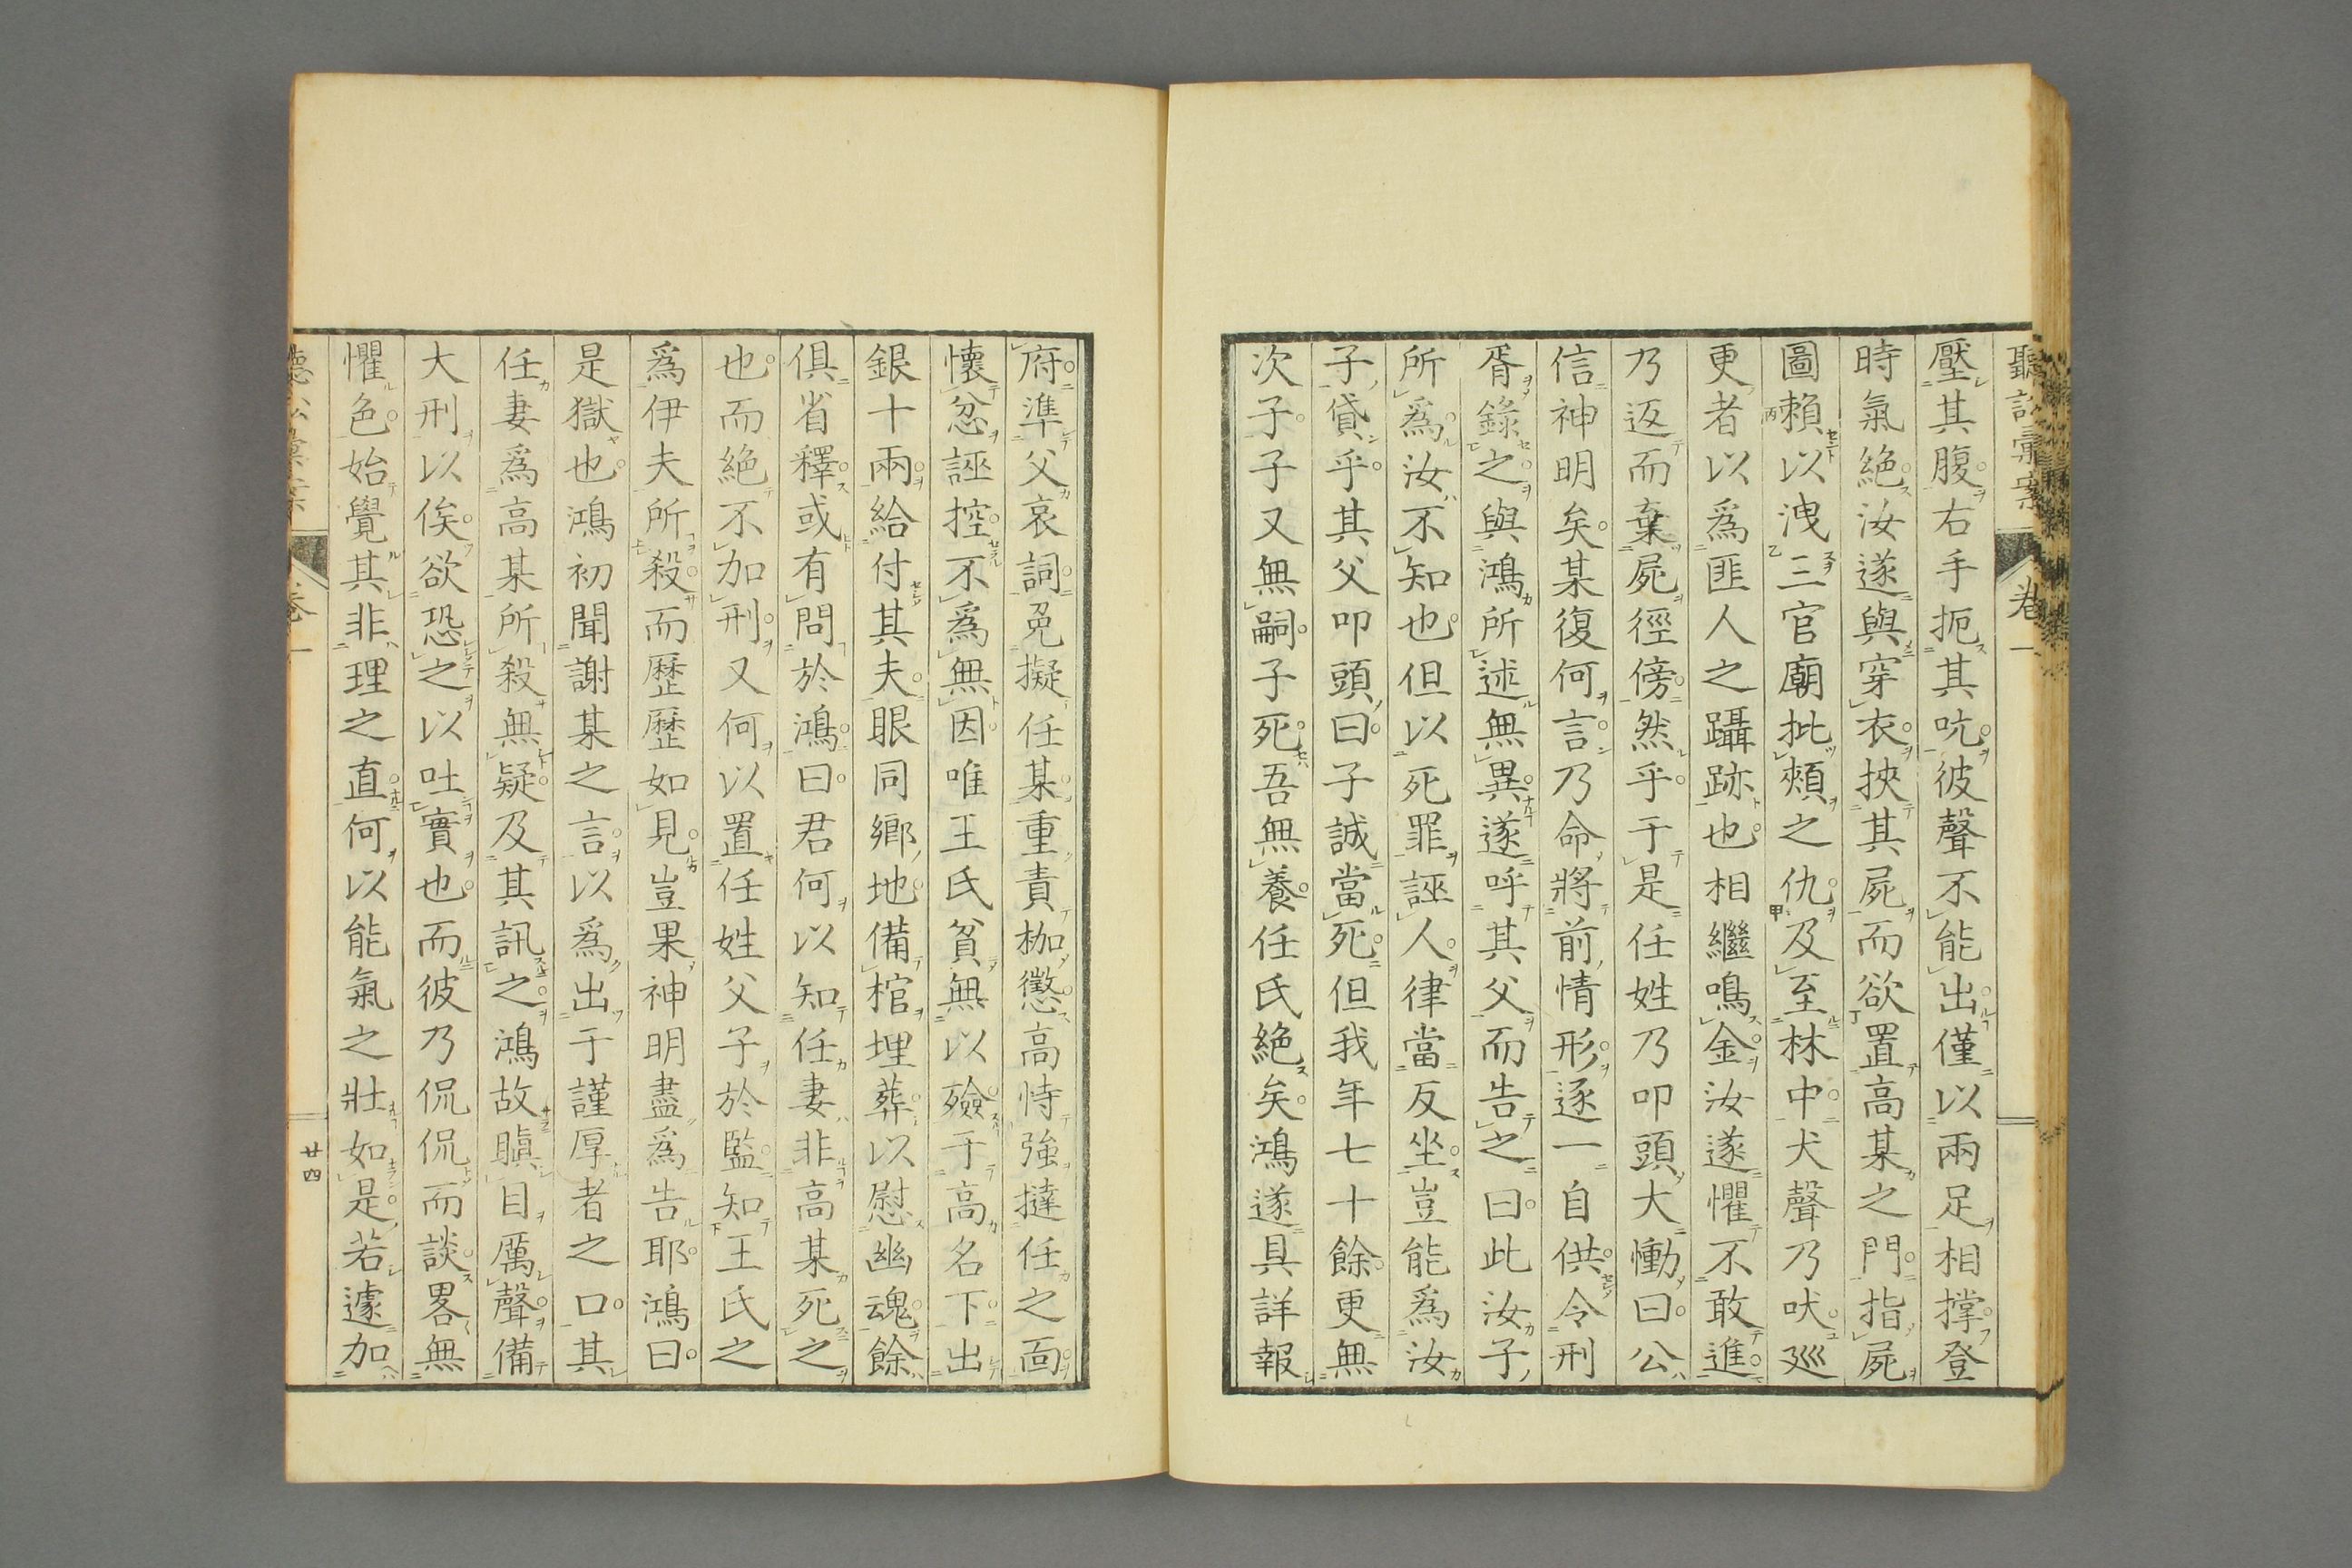 聽訟彙案 卷一
壓其腹右手扼其吭彼聲不能出僅以兩足相撑登
時氣絶汝遂與穿衣挾其屍而欲置高某之門指屍
圖賴以洩三官廟批頰之仇及至林中犬聲乃吠廵
更者以爲匪人之躡跡也相繼鳴金汝遂懼不敢進
乃返而棄屍徑傍然乎于是任姓乃叩頭大慟曰公
信神明矣某復何言乃命將前情形逐一自供令刑
胥錄之與鴻所述無異遂呼其父而告之曰此汝子
所爲汝不知也但以死罪誣人律當反坐豈能爲汝
子貸乎其父叩頭曰子誠當死但我年七十餘更無
次子子又無嗣子死吾無養任氏絶矣鴻遂具詳報
府準父哀詞免擬任某重責枷懲高恃強撻任之面
懷忿誣控不爲無因唯王氏貧無以殮于高名下出
銀十兩給付其夫眼同鄉地備棺埋葬以慰幽魂餘
俱省釋或有問於鴻曰君何以知任妻非高某死之
也而絶不加刑又何以置任姓父子於監知王氏之
爲伊夫所殺而歷歷如見豈果神明盡爲告耶鴻曰
是獄也鴻初聞謝某之言以爲出于謹厚者之口其
任妻爲高某所殺無疑及其訊之鴻故瞋目厲聲備
大刑以俟欲恐之以吐實也而彼乃侃侃而談畧無
懼色始覺其非理之直何以能氣之壯如是若遽加
廿四